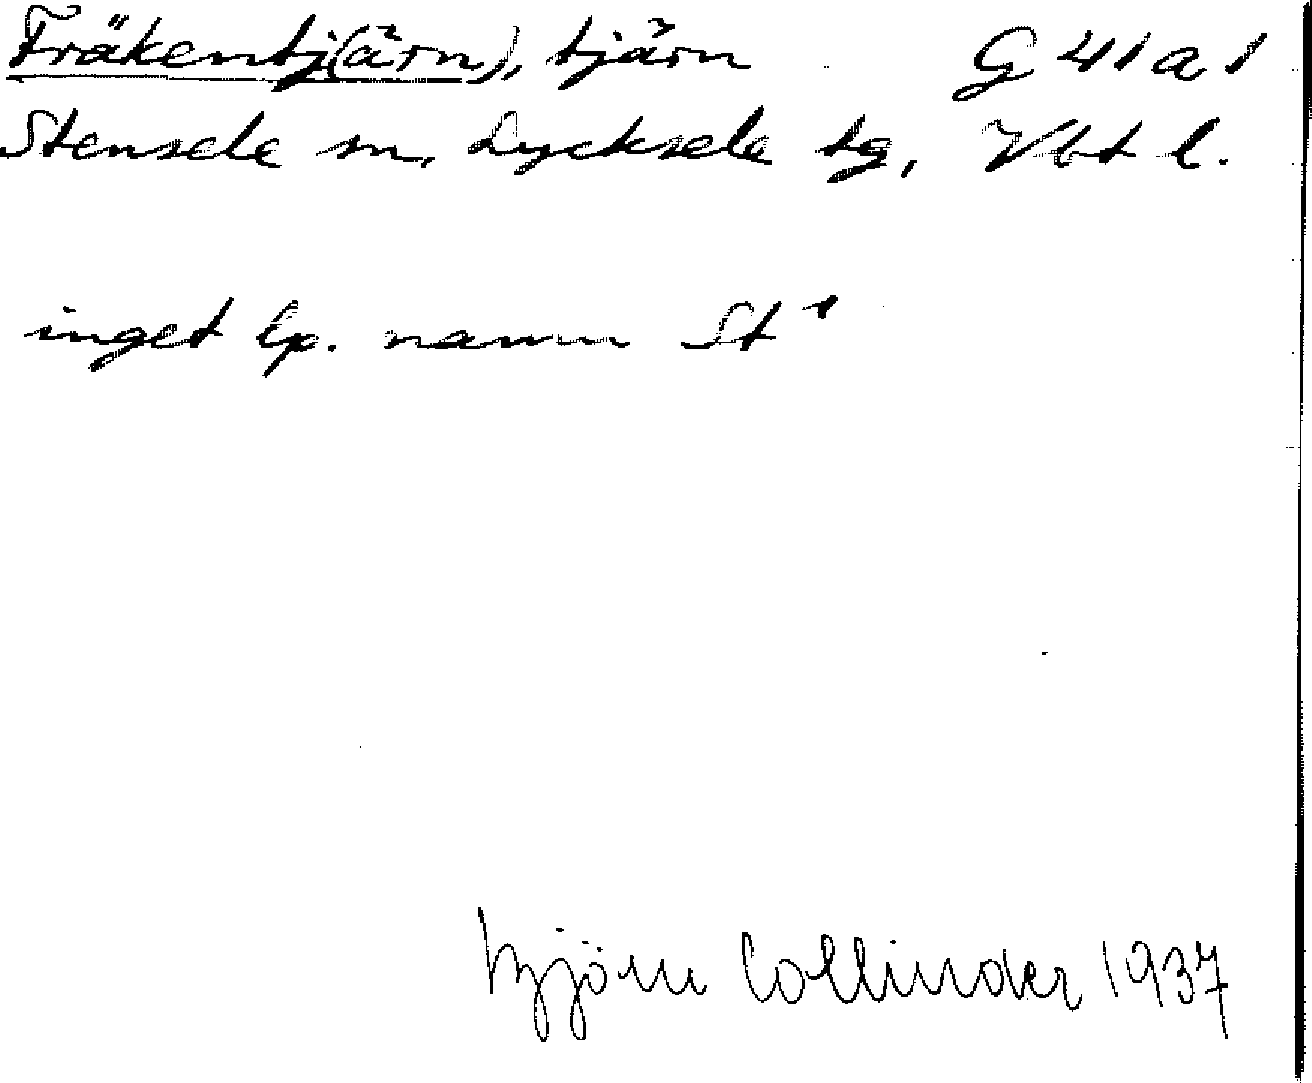 Fräkentj(ärn), tjärn G 41 a 1
Stensele sn, Lycksele tg, Vbt l.
inget lp. namn St 1
Björn Collinder 1937